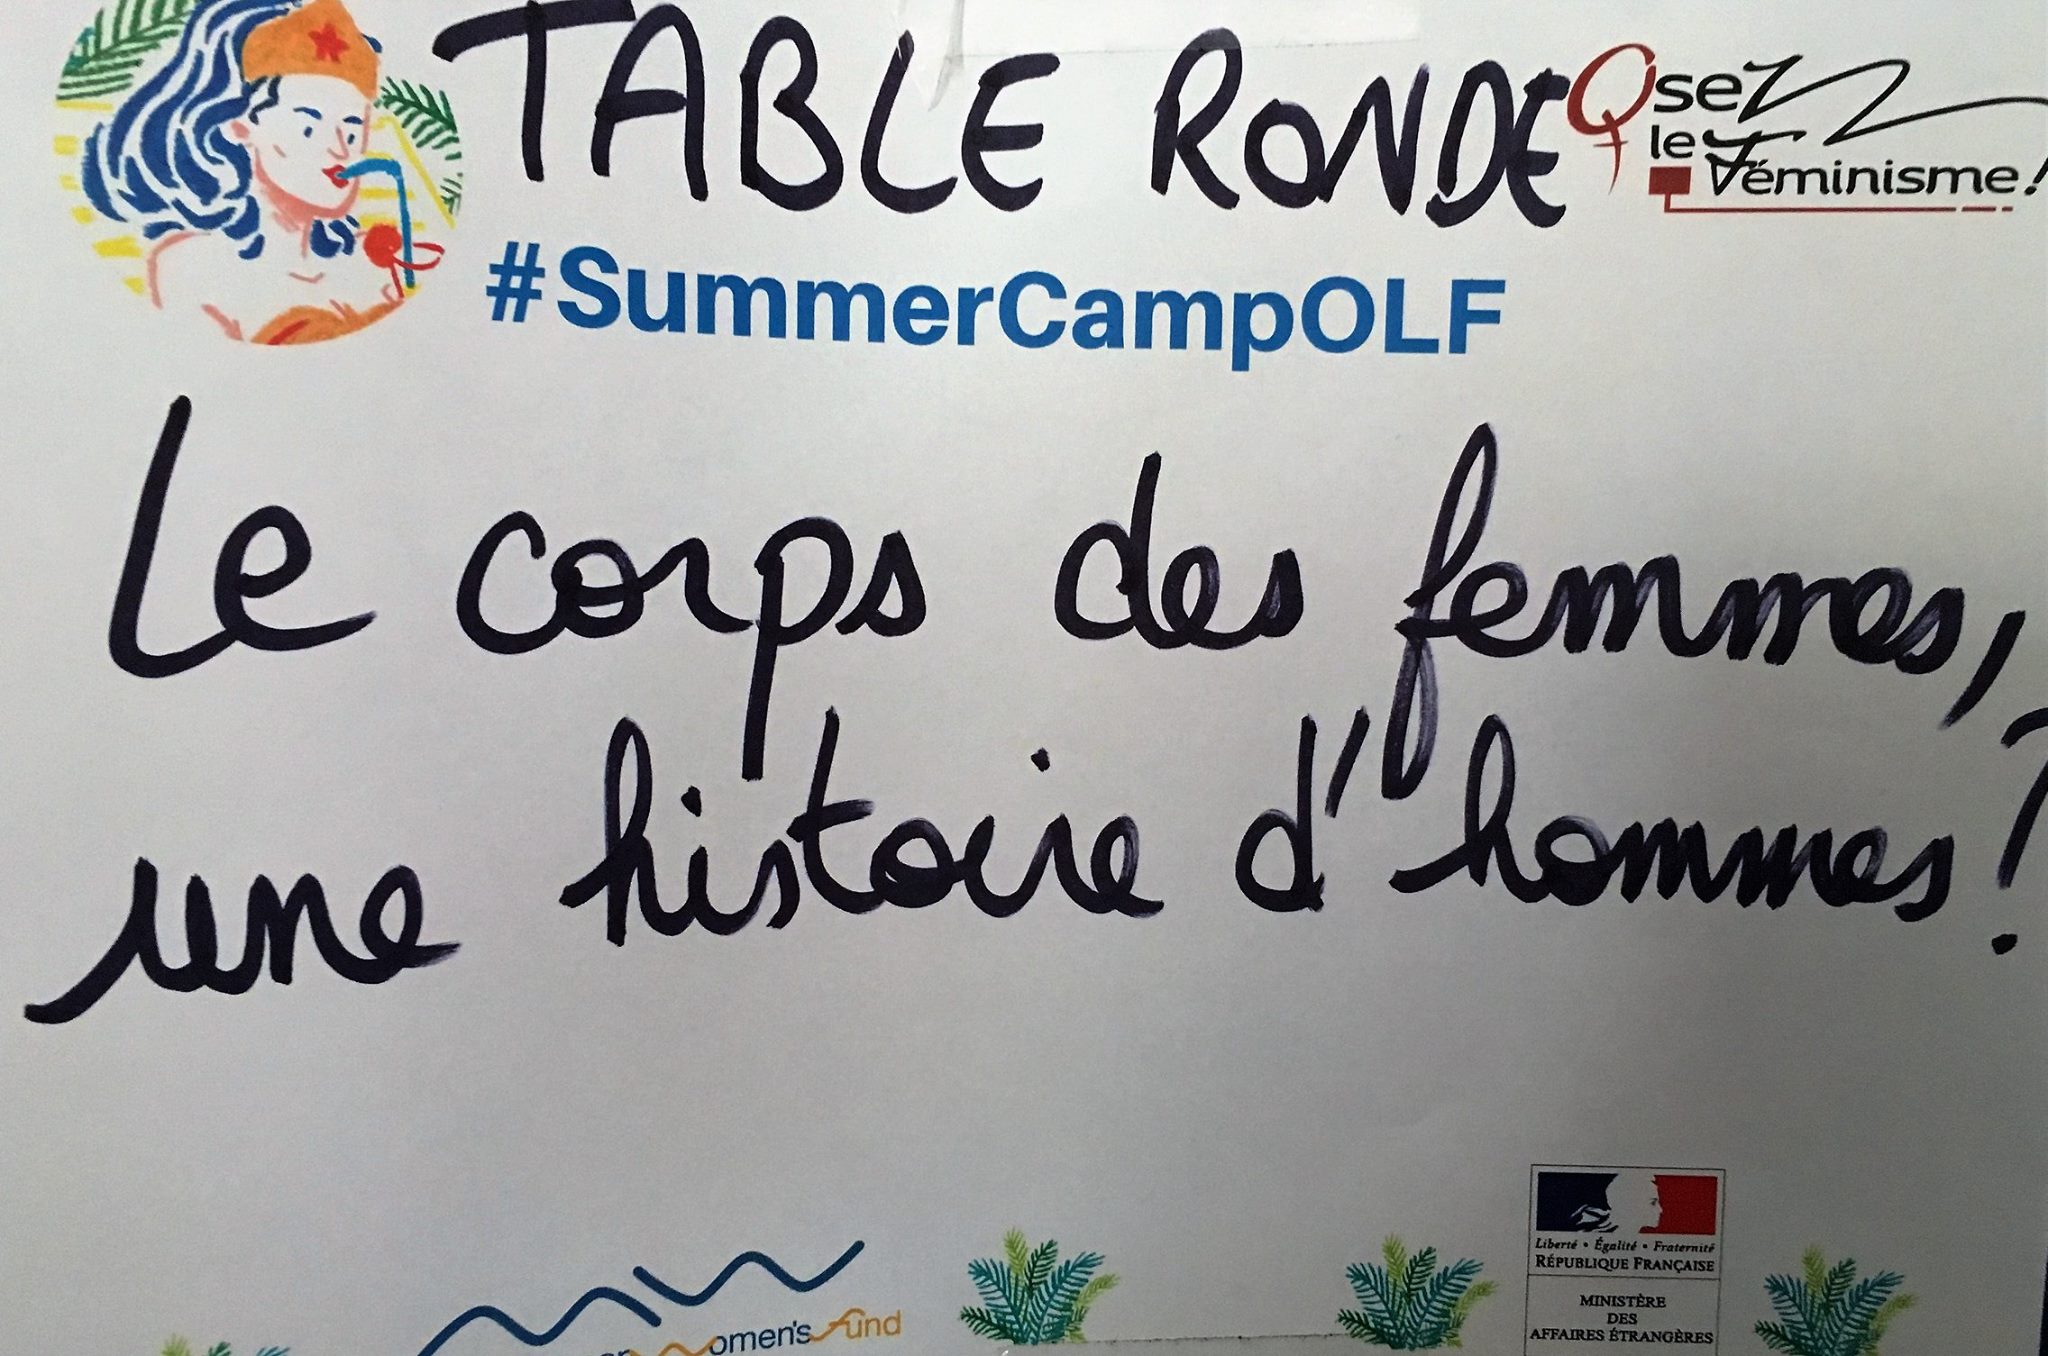 TABLE RONDE
Osez
le Féminisme!
#SummerCampOLF
Le corps des femmes,
une histoire d'hommes?
women's fund
Liberté • Égalité • Fraternité
RÉPUBLIQUE FRANÇAISE
MINISTÈRE
DES
AFFAIRES ÉTRANGÈRES